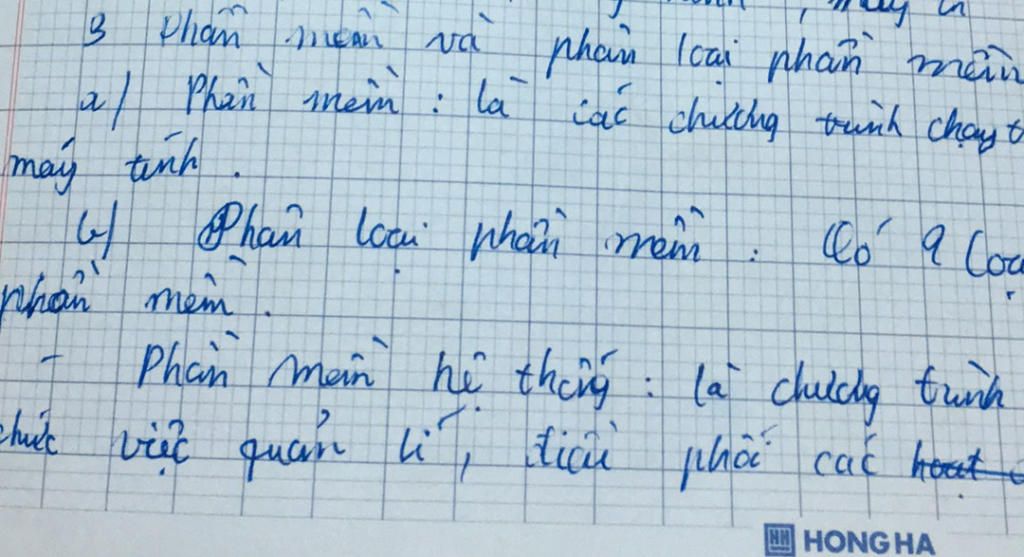 , máy in
3 Phần mềm và phân loại phần mềm
a) Phần mềm : là các chương trình chạy t
máy tính .
b) Phân loại phần mềm : Có 2 loạ
phần mềm .
- Phần mềm hệ thống : là chương trình
chức việc quản lí , điều phối các hoạt
HH HONG HA